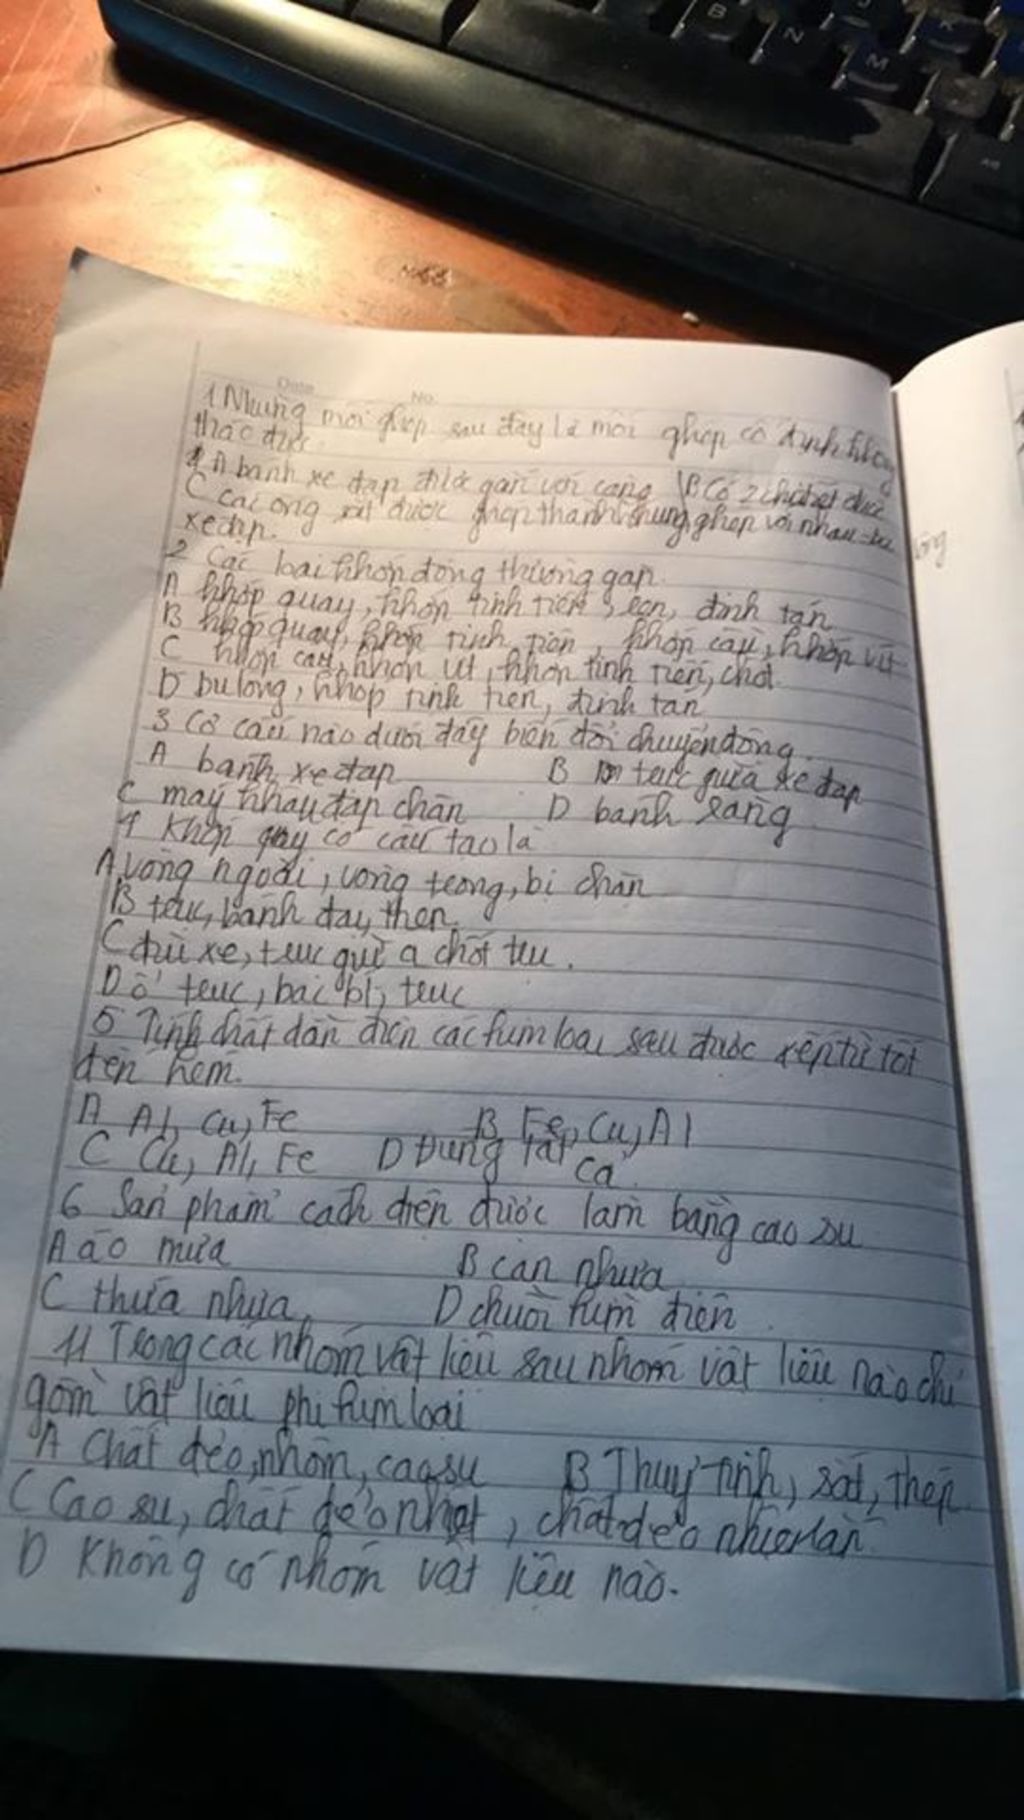 Date No.
1 Những mối ghép sau đây là mối ghép cố định không
tháo được
A bánh xe đạp được gắn với càng B Có 2 chi tiết được
C cái ống sắt được ghép thành khung ghép với nhau
xe đạp.
2 Các loại khớp động thường gặp
A khớp quay, khớp tịnh tiến, ren, đinh tán
B khớp quay, khớp tịnh tiến, khớp cầu, khớp vít
C khớp cầu, khớp vít, khớp tịnh tiến, chốt
D bulông, khớp tịnh tiến, đinh tán
3 Cơ cấu nào dưới đây biến đổi chuyển động.
A bánh xe đạp B trục giữa xe đạp
C máy khâu đạp chân D bánh răng
4 Khớp quay có cấu tạo là
A, vòng ngoài, vòng trong, bi chặn
B trục, bánh đai, then
C đùi xe, trục giữa chốt trụ.
D ổ trục, bạc bi, trục
5 Tính chất dẫn điện các kim loại sau được xếp từ tốt
đến kém.
A Al, Cu, Fe B Fe, Cu, Al
C Cu, Al, Fe D Đúng tất
cả
6 Sản phẩm cách điện được làm bằng cao su
A áo mưa B can nhựa
C thừa nhựa D chuôi kìm điện
11 Trong các nhóm vật liệu sau nhóm vật liệu nào chỉ
gồm vật liệu phi kim loại
A Chất dẻo, nhôm, cao su B Thuỷ tinh, sắt, thép
C Cao su, chất dẻo nhiệt, chất dẻo nhiệt rắn
D Không có nhóm vật liệu nào.
B N M K